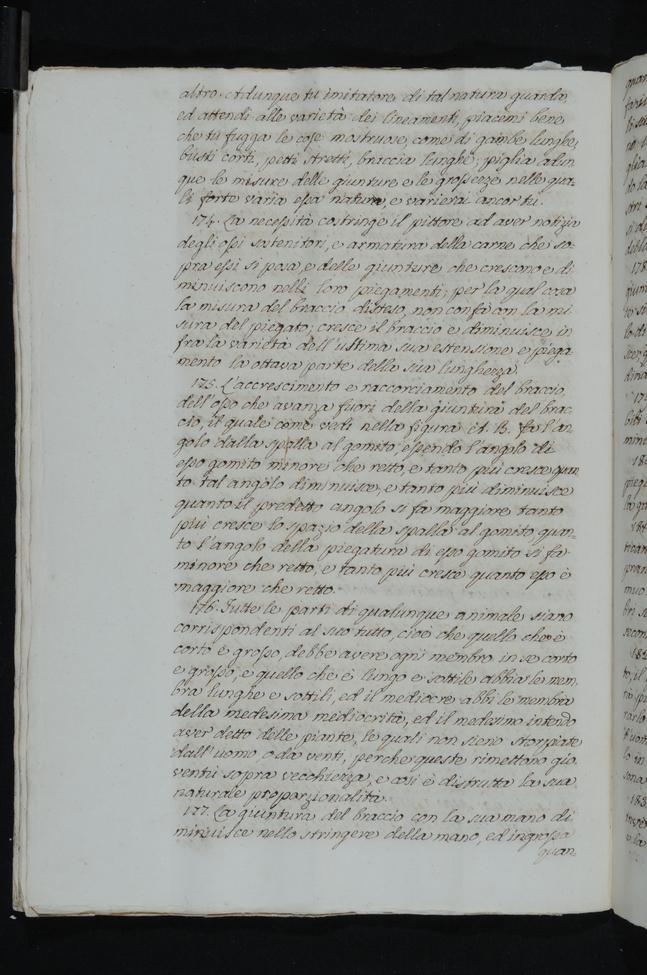 altro. Adunque tu imitatore di tal natura guarda,
ed attendi alle varietà dei lineamenti, piacemi bene
che tu fugga le cose mostruose, come di gambe lunghe,
busti corti, petti stretti, braccia lunghe; piglia adun
que le misure delle giunture, e le grossezze nelle qua-
li forte varia essa natura, e varierai ancor tu.
174. La necessità costringe il pittore ad aver notizia
degli ossi sostenitori, e armatura della carne che so-
pra essi si posa, e delle giunture che crescono e di
minuiscono nelli loro piegamenti; per la qual cosa
la misura del braccio disteso, non confà con la mi-
sura del piegato; cresce il braccio e diminuisce in
fra la varietà dell'ultima sua estensione e piega-
mento la ottava parte della sua lunghezza.
175. L'accrescimento e raccorciamento del braccio
dell'osso che avanza fuori della giuntura del brac-
cio, il quale come vedi nella figura A. B. fa l'an
golo dalla spalla al gomito, essendo l'angolo di
esso gomito minore che retto, e tanto più cresce quan
to tal angolo diminuisce, e tanto più diminuisce
quanto il predetto angolo si fa maggiore tanto
più cresce lo spazio della spalla al gomito, quan-
to l'angolo della piegatura di esso gomito si fa
minore che retto, e tanto più cresce quanto esso è
maggiore che retto.
176. Tutte le parti di qualunque animale siano
corrispondenti al suo tutto, cioè che quello che è
corto e grosso, debbe avere ogni membro in se corto
e grosso, e quello che è lungo e sottile abbia le mem
bra lunghe e sottili, ed il mediocre abbi le membra
della medesima mediocrità, ed il medesimo intendo
aver detto delle piante, le quali non sieno storpiate
dall'uomo, o da venti, perche queste rimettono gio-
ventù sopra vecchiezza, e così è distrutta la sua
naturale proporzionalità.
177. La giuntura del braccio con la sua mano di
minuisce nello stringere della mano, ed ingrossa
quan-